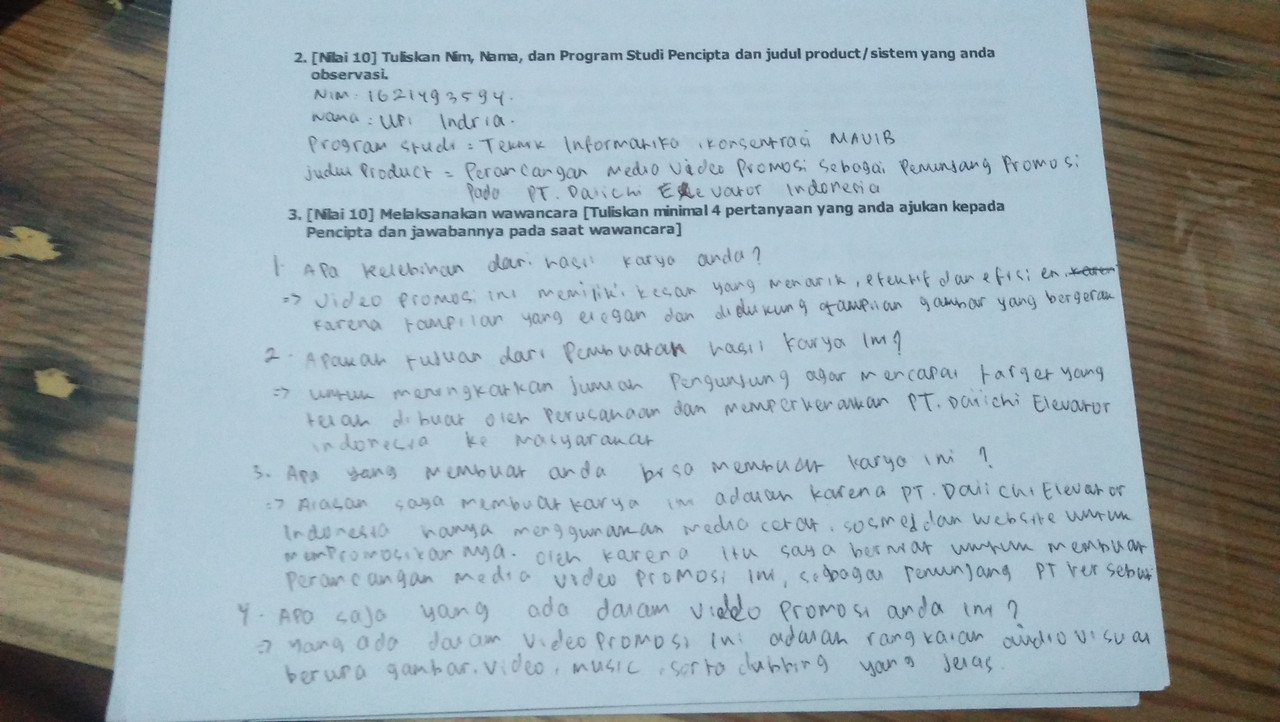 2. [Nilai 10] Tuliskan Nim, Nama, dan Program Studi Pencipta dan judul product/sistem yang anda
observasi.
Nim. 1621493594.
Nama : Upi Indria.
Program studi = Teknik Informatika, konsentrasi MAVIB
judul Product = Perancangan Media Video Promosi sebagai Penunjang Promosi
Pada PT. Daiichi Elevator Indonesia
3. [Nilai 10] Melaksanakan wawancara [Tuliskan minimal 4 pertanyaan yang anda ajukan kepada
Pencipta dan jawabannya pada saat wawancara]
1. Apa kelebihan dari hasil karya anda?
=> Video promosi ini memiliki kesan yang menarik, efektif dan efisien.
karena tampilan yang elegan dan didukung tampilan gambar yang bergerak
2. Apakah tujuan dari Pembuatan hasil karya ini?
=> untuk meningkatkan jumlah Pengunjung agar mencapai target yang
telah dibuat oleh Perusahaan dan memperkenalkan PT. Daiichi Elevator
indonesia ke masyarakat
3. Apa yang membuat anda bisa membuat karya ini?
=> Alasan saya membuat karya ini adalah karena PT. Daiichi Elevator
Indonesia hanya menggunakan media cetak, sosmed dan website untuk
mempromosikannya. oleh karena itu saya berniat untuk membuat
Perancangan media video promosi ini, sebagai Penunjang PT tersebut
4. Apa saja yang ada dalam video promosi anda ini?
=> yang ada dalam video promosi ini adalah rangkaian audio visual
berupa gambar, video, music, serta dubbing yang jelas.